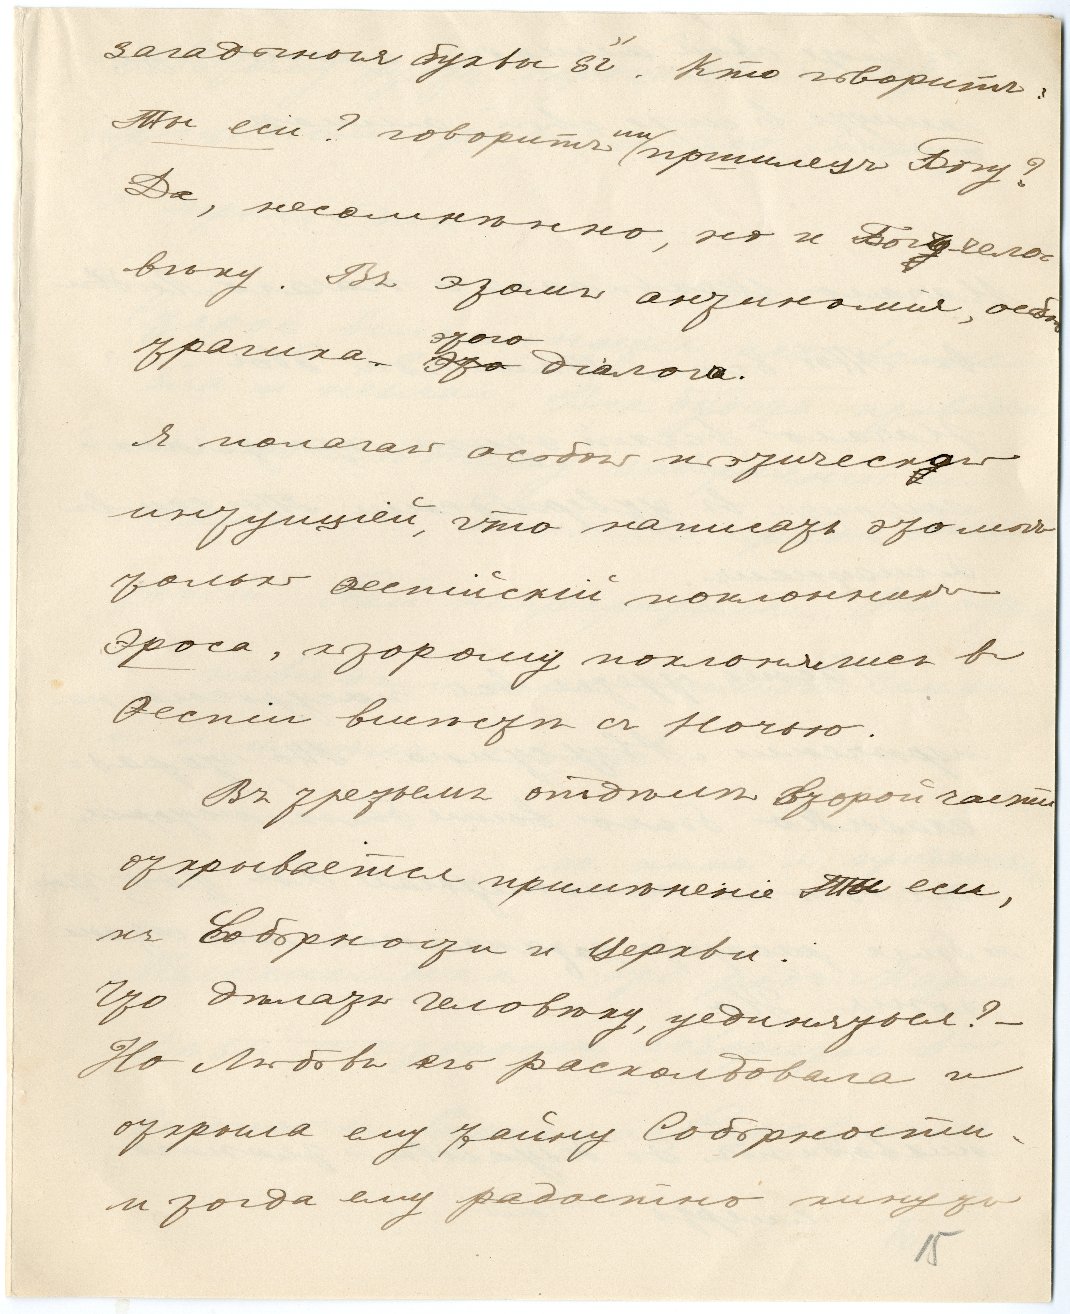 загадочныя буквы εἶ. Кто говоритъ:
Ты еси? говоритъ ли пришлецъ Богу?
Да, несомнѣнно, но и Богъ чело-
вѣку. Въ этомъ антиномія, особая
трагика этого діалога.
Я полагаю особою поэтическою
интуиціей, что написать это могъ
только Ѳеспійскій поклонникъ
Эроса, которому поклонялись въ
Ѳеспіи вмѣстѣ съ Ночью.
Въ третьемъ отдѣлѣ второй части
открывается примѣненіе Ты еси,
къ Соборности и Церкви.
Что дѣлать человѣку, уединяться? –
Но Любовь его расколдовала и
открыла ему тайну Соборности –
и тогда ему радостно кинуть
15